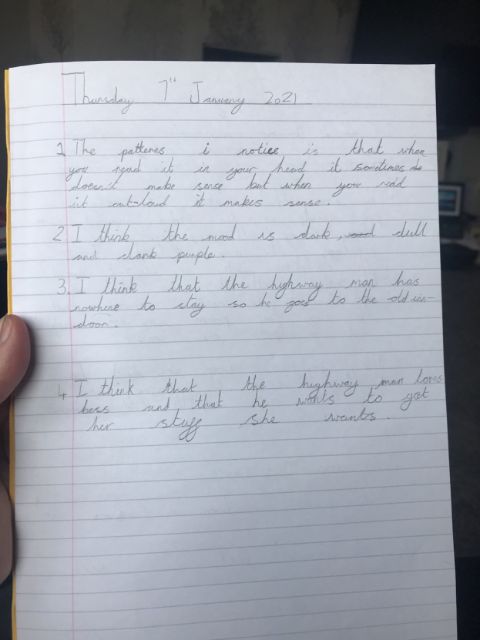 Thursday 7th January 2021
1. The patteres i notics is that when
you read it in your head it sometimes do
doesn't make sense but when you read
it out-loud it makes sense.
2. I think the mod is dark, and dull
and dark purple.
3. I think that the highway man has
nowhere to stay so he goes to the old in-
door.
4. I think that the highway man loves
bess and that he wants to get
her stuff she wants.